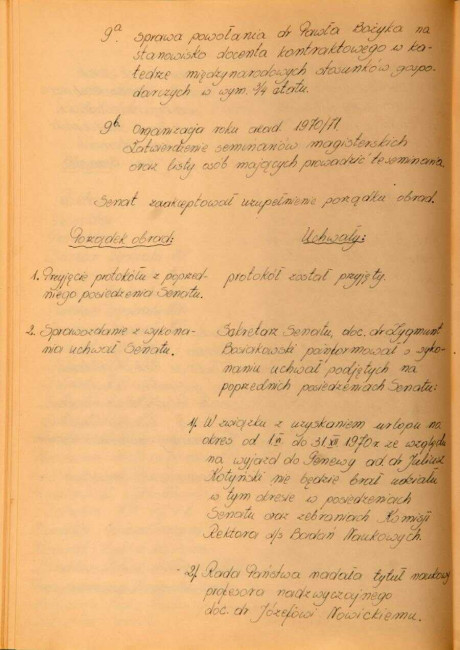 9ᵃ. sprawa powołania dr Pawła Bożyka na
stanowisko docenta kontraktowego w ka-
tedrze międzynarodowych stosunków gospo-
darczych w wym. ¾ etatu.
9ᵇ. Organizacja roku akad. 1970/71.
Zatwierdzenie seminariów magisterskich
oraz listy osób mających prowadzić te seminaria.
Senat zaakceptował uzupełnienie porządku obrad.
Porządek obrad:
Uchwały:
1. Przyjęcie protokółu z poprzed-
niego posiedzenia Senatu.
protokół został przyjęty.
2. Sprawozdanie z wykona-
nia uchwał Senatu.
Sekretarz Senatu, doc. dr Zygmunt
Bosiakowski poinformował o wyko-
naniu uchwał podjętych na
poprzednich posiedzeniach Senatu:
1/ W związku z uzyskaniem urlopu na
okres od 1 VI do 31 XII 1970 r. ze względu
na wyjazd do Genewy ad. dr Juliusz
Kotyński nie będzie brał udziału
w tym okresie w posiedzeniach
Senatu oraz zebraniach Komisji
Rektora d/s Badań Naukowych.
2/ Rada Państwa nadała tytuł naukowy
profesora nadzwyczajnego
doc. dr Józefowi Nowickiemu.